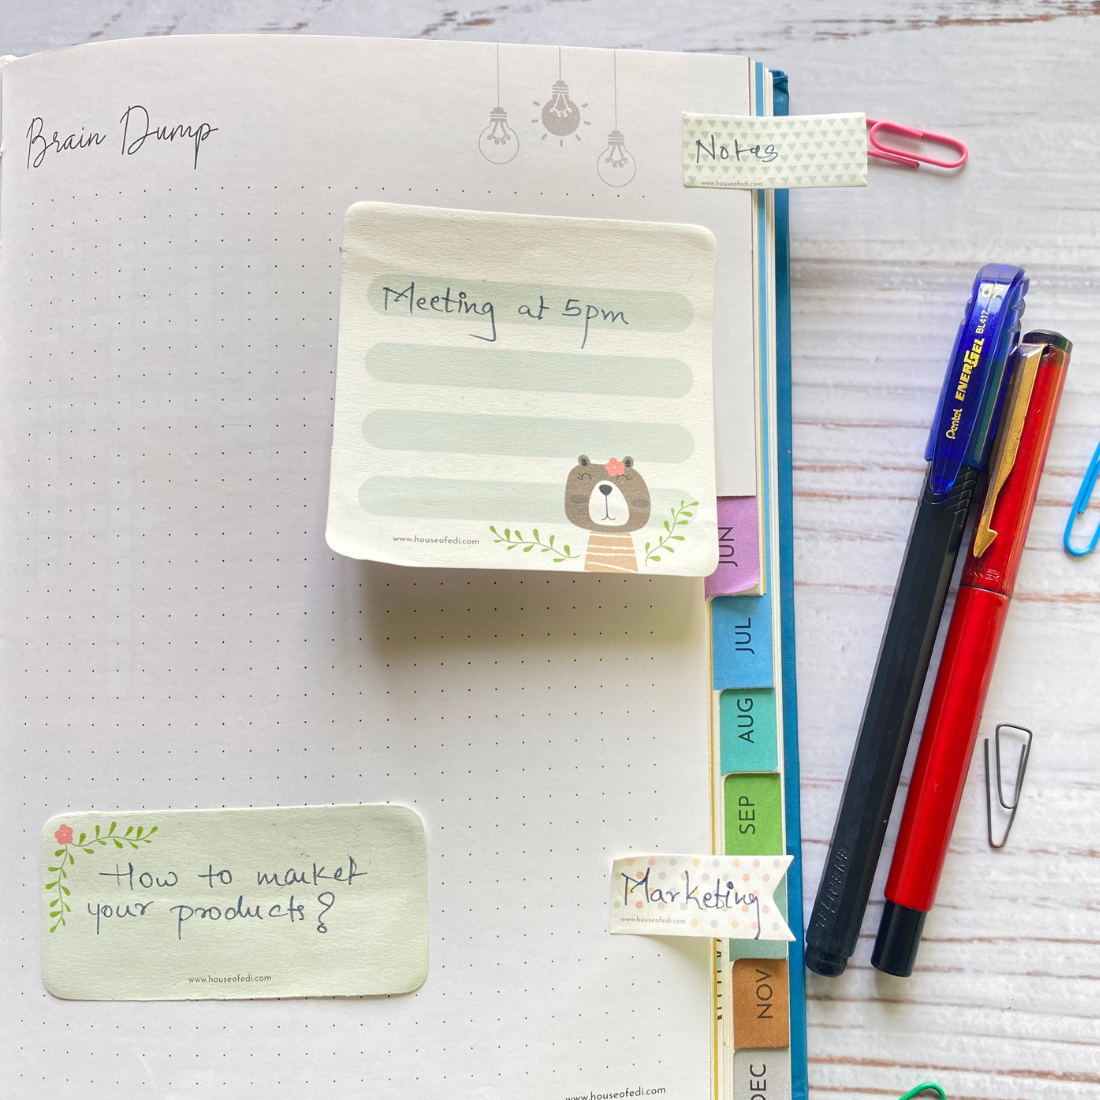 Brain Dump
Notes
www.houseofedi.com
Meeting at 5pm
www.houseofedi.com
JUN
JUL
AUG
SEP
How to market
your products?
www.houseofedi.com
Marketing
www.houseofedi.com
NOV
DEC
www.houseofedi.com
Pentel ENERGEL BL417